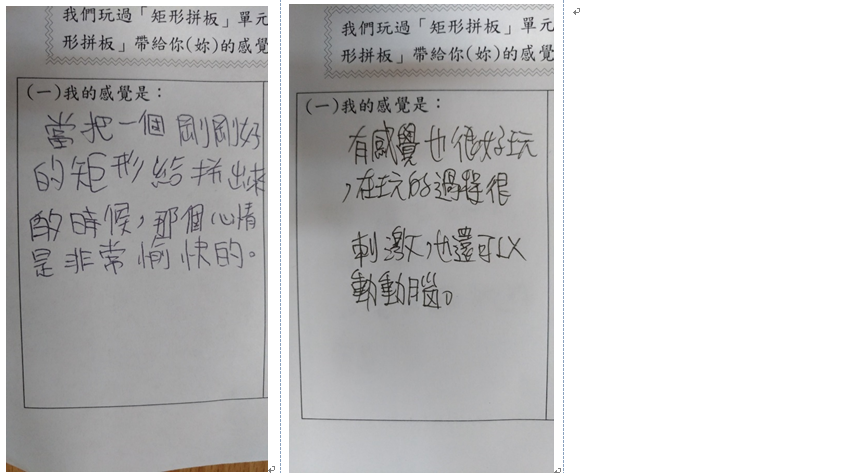 我們玩過「矩形拼板」單元
形拼板」帶給你(妳)的感覺
(一)我的感覺是：
當把一個剛剛好
的矩形給拼出來
的時候，那個心情
是非常愉快的。
我們玩過「矩形拼板」單元
形拼板」帶給你(妳)的感覺
(一)我的感覺是：
有感覺也很好玩
，在玩的過得很
刺激，也還可以
動動腦。